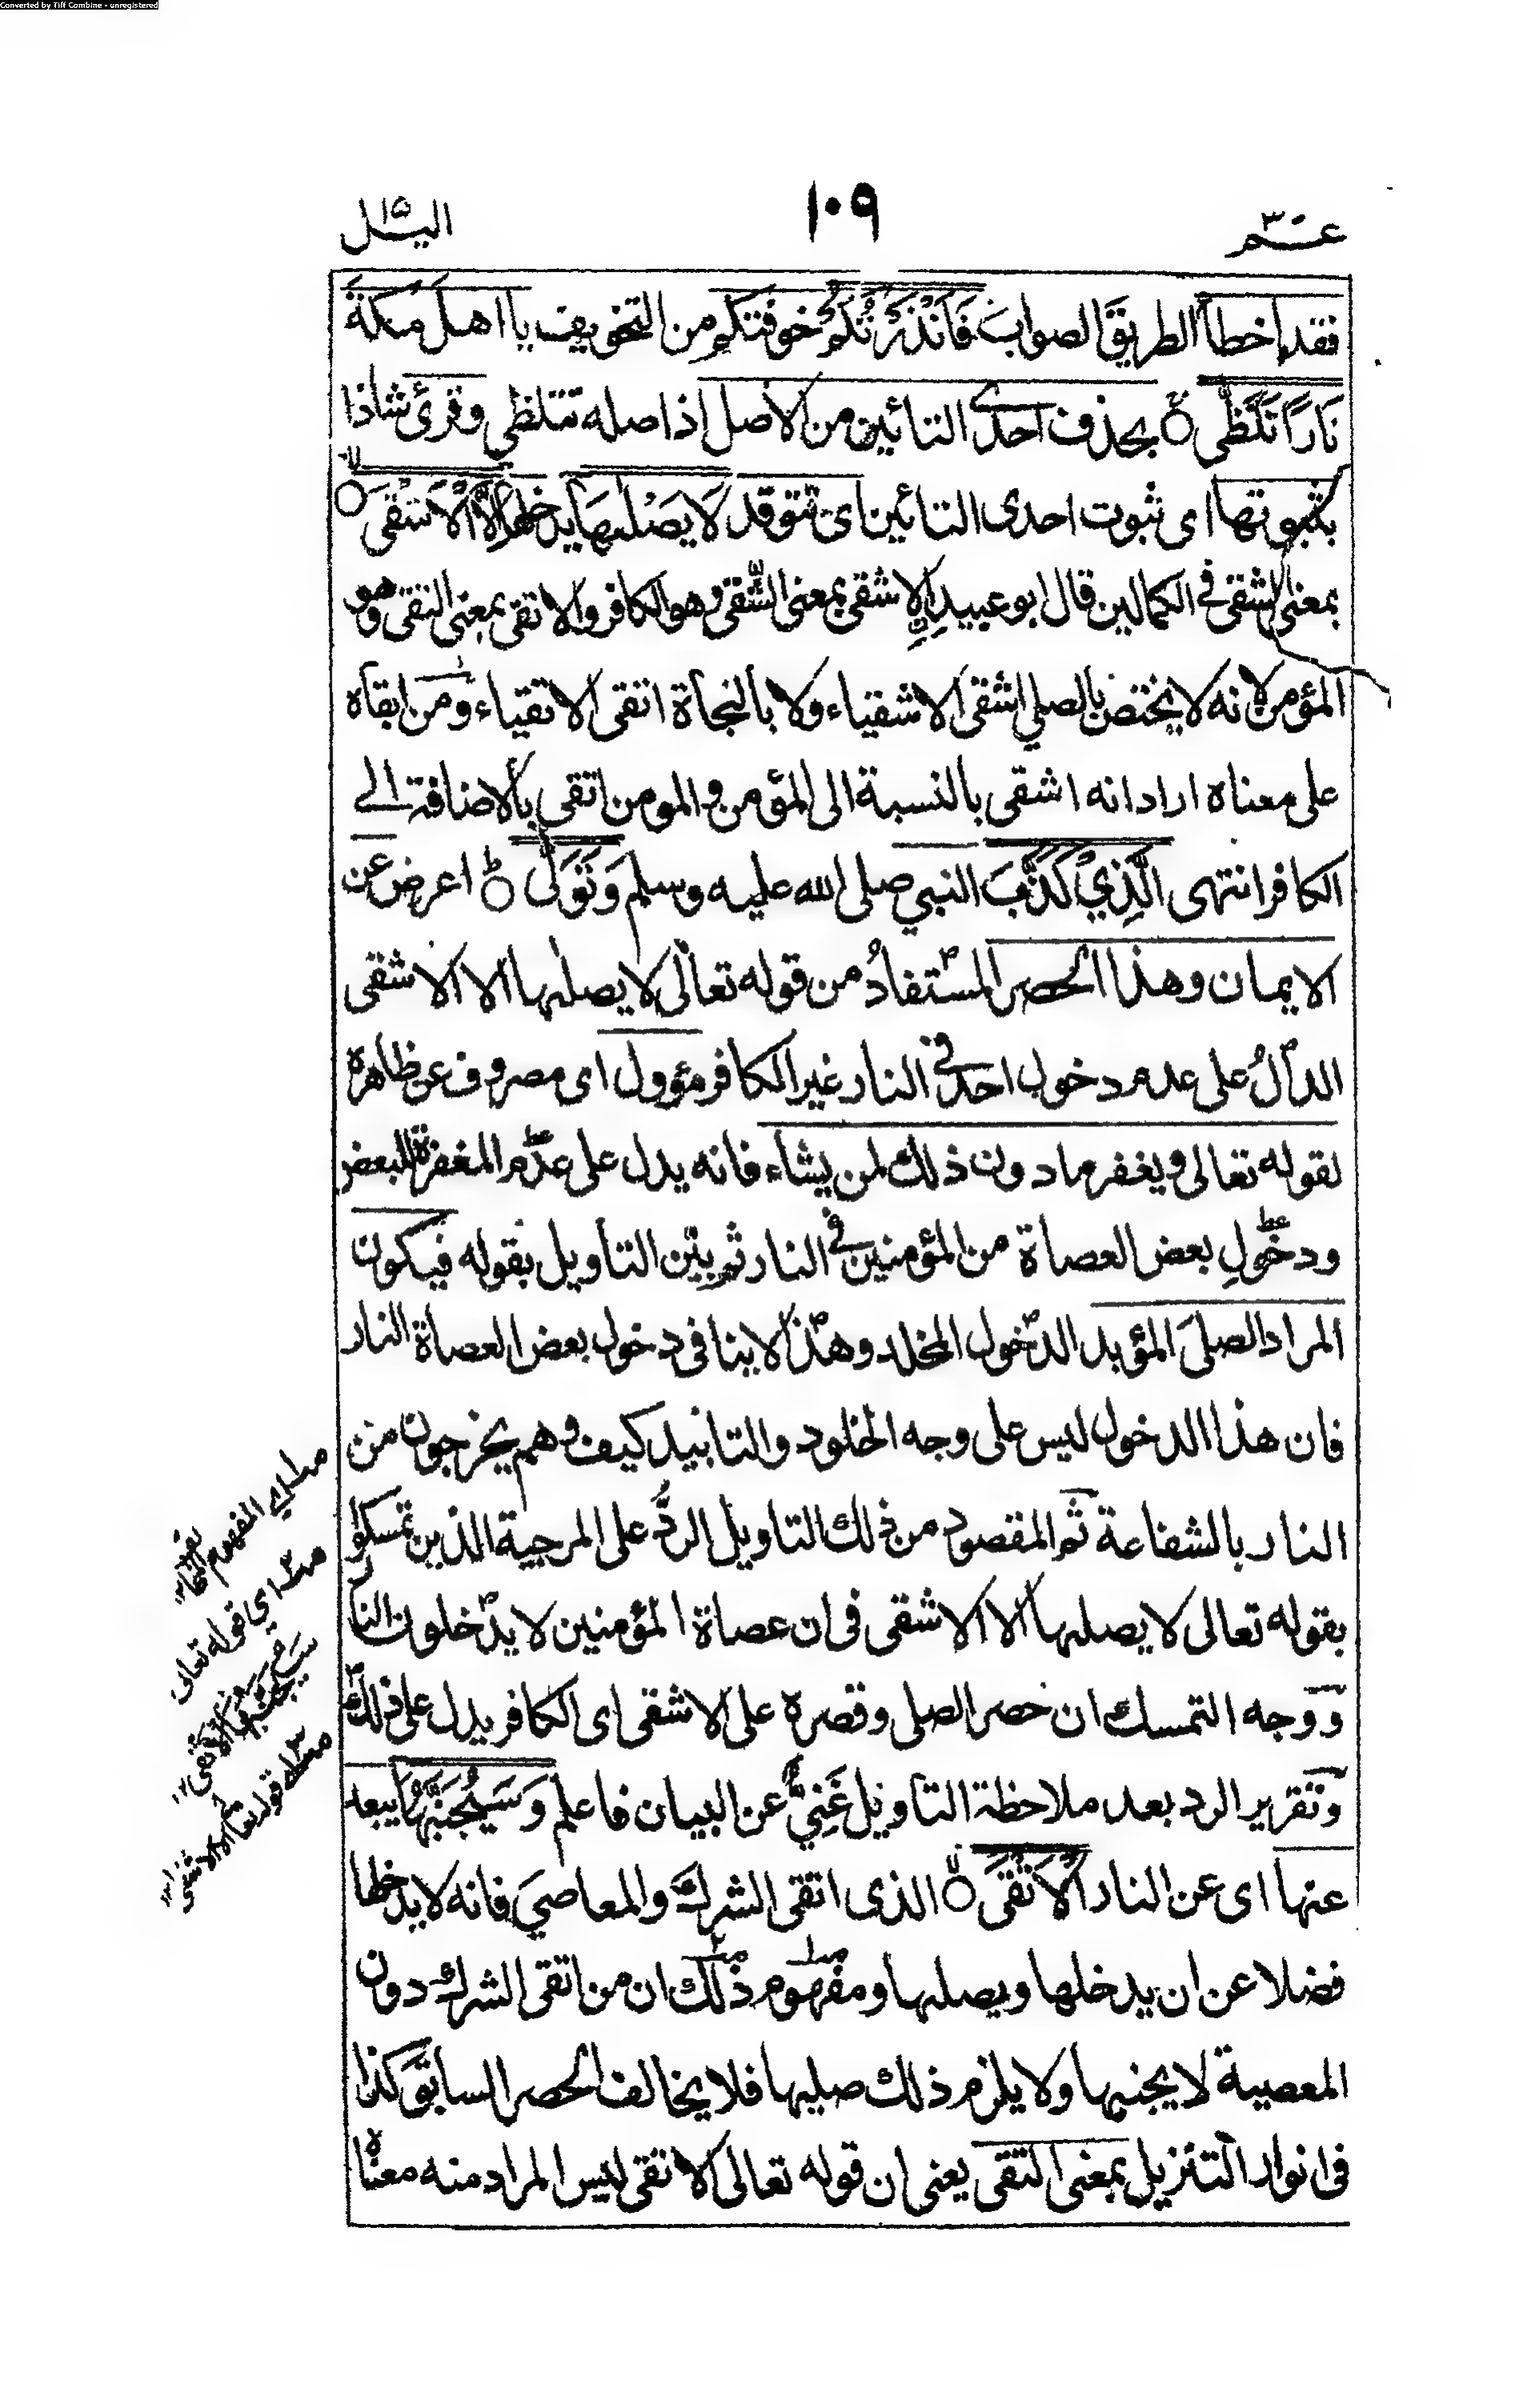 Converted by Tiff Combine - unregistered
عــم ٣٠
١٠٩
اليـــل
فقد اخطأ الطريق الصواب فَاَنْذَرْتُكُمْ خوفتكم من التخويف يا اهل مكة
نَارًا تَلَظّٰى بحذف احدى التائين من الاصل اذ اصله تتلظى وقرئ شاذا
بثبوتها اى ثبوت احدى التائين اى تتوقد لَا يَصْلٰىهَا يدخلها اِلَّا الْاَشْقَى
بمعنى الشقى فى الكمالين قال ابو عبيد الاشقى بمعنى الشقى وهو الكافر والاتقى بمعنى التقى وهو
المؤمن لانه لا يختص بالصلي اشقى الاشقياء ولا بالنجاة اتقى الاتقياء ومن ابقاه
على معناه اراد انه اشقى بالنسبة الى المؤمن والمومن اتقى بالاضافة الے
الكافر انتهى الَّذِيْ كَذَّبَ النبي صلى الله عليه وسلم وَتَوَلّٰى اعرض عن
الايمان وهذا الحصر المستفادُ من قوله تعالى لا يصلىها الا الاشقى
الدالُ على عدم دخول احد فى النار غير الكافر مؤول اى مصروف عن ظاهره
لقوله تعالى ويغفر ما دون ذلك لمن يشاء فانه يدل على عدم المغفرة للبعض
ودخولِ بعض العصاة من المؤمنين فى النار ثم بين التاويل بقوله فيكون
المراد الصلى المؤبد الدخول المخلد وهذا لا ينافى دخول بعض العصاة النار
فان هذا الدخول ليس على وجه الخلود والتابيد كيف وهم يخرجون من
النار بالشفاعة ثم المقصود من ذلك التاويل الردُّ على المرجية الذين تمسكوا
بقوله تعالى لا يصلىها الا الاشقى فى ان عصاة المؤمنين لا يدخلون النا
ووجه التمسك ان حصر الصلى وقصره على الاشقى اى الكافر يدل على ذلك
وتقرير الرد بعد ملاحظة التاويل غَنِيٌّ عن البيان فاعلم وَسَيُجَنَّبُهَا يبعد
عنها اى عن النار الْاَتْقَى الذى اتقى الشرك والمعاصي فانه لا يدخلها
فضلا عن ان يدخلها ويصلىها ومفهوم ذلك ان من اتقى الشرك دون
المعصية لا يجنبها ولا يلزم ذلك صليها فلا يخالف الحصر السابق كذا
فى انوار التنزيل بمعنى التقى يعنى ان قوله تعالى الاتقى ليس المراد منه معناه
اي المفهوم
اي قوله تعالى
سيجنبها الاتقى